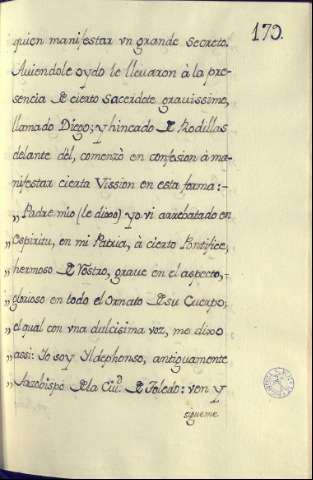 173.
quien manifestar vn grande Secreto.
Auiendole oydo le lleuaron à la pre-
sencia de cierto Sacerdote grauissimo,
llamado Diego; y hincado de Rodillas
delante dèl, comenzò en confesion à ma-
nifestar cierta Vission en esta forma:-
„ Padre mio (le dixo) yo vi arrebatado en
„ espiritu, en mi Patria, à cierto Pontifice,
„ hermoso de Rostro, graue en el aspecto,-
„ glorioso en todo el Ornato de su Cuerpo;
„ el qual con vna dulcisima voz, me dixo
„ assi: Yo soy Yldephonso, antiguamente
„ Arzobispo de la Ciud. de Toledo: ven y
sigueme